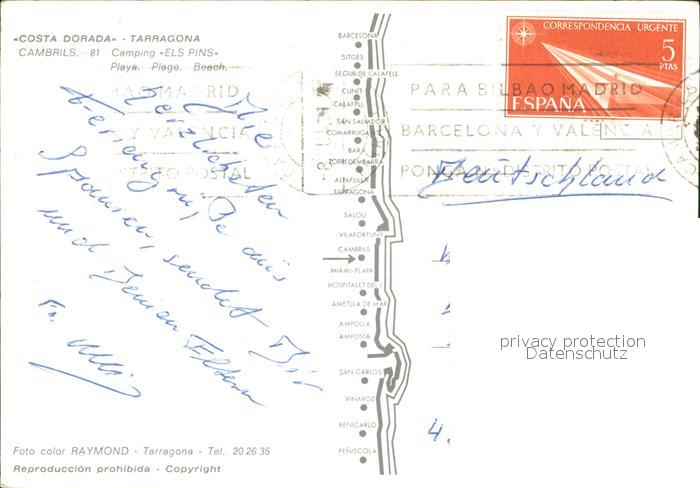 «COSTA DORADA» - TARRAGONA
CAMBRILS. - 81 Camping «ELS PINS»
Playa. Plage. Beach.
BARCELONA
SITGES
SEGUR DE CALAFELL
CUNIT
CALAFELL
SAN SALVADOR
COMARRUGA
BARA
TORREDEMBARRA
ALTAFULLA
TARRAGONA
SALOU
VILAFORTUNY
CAMBRILS
MIAMI-PLAYA
HOSPITALET DEL
AMETLLA DE MAR
AMPOLLA
AMPOSTA
SAN CARLOS
VINAROZ
BENICARLO
PEÑISCOLA
CORRESPONDENCIA URGENTE
5
PTAS
ESPAÑA
BAO MADRID
Y VALENCIA
STRITO POSTAL
PARA BILBAO MADRID
BARCELONA Y VALENCIA
PONGA DISTRITO POSTAL
Die
herzlichsten
Feriengrüße aus
Spanien, sendet Dir
und Deinen Eltern
Fr.
Deutschland
4.
privacy protection
Datenschutz
Foto color RAYMOND - Tarragona - Tel. 20 26 35
Reproducción prohibida - Copyright